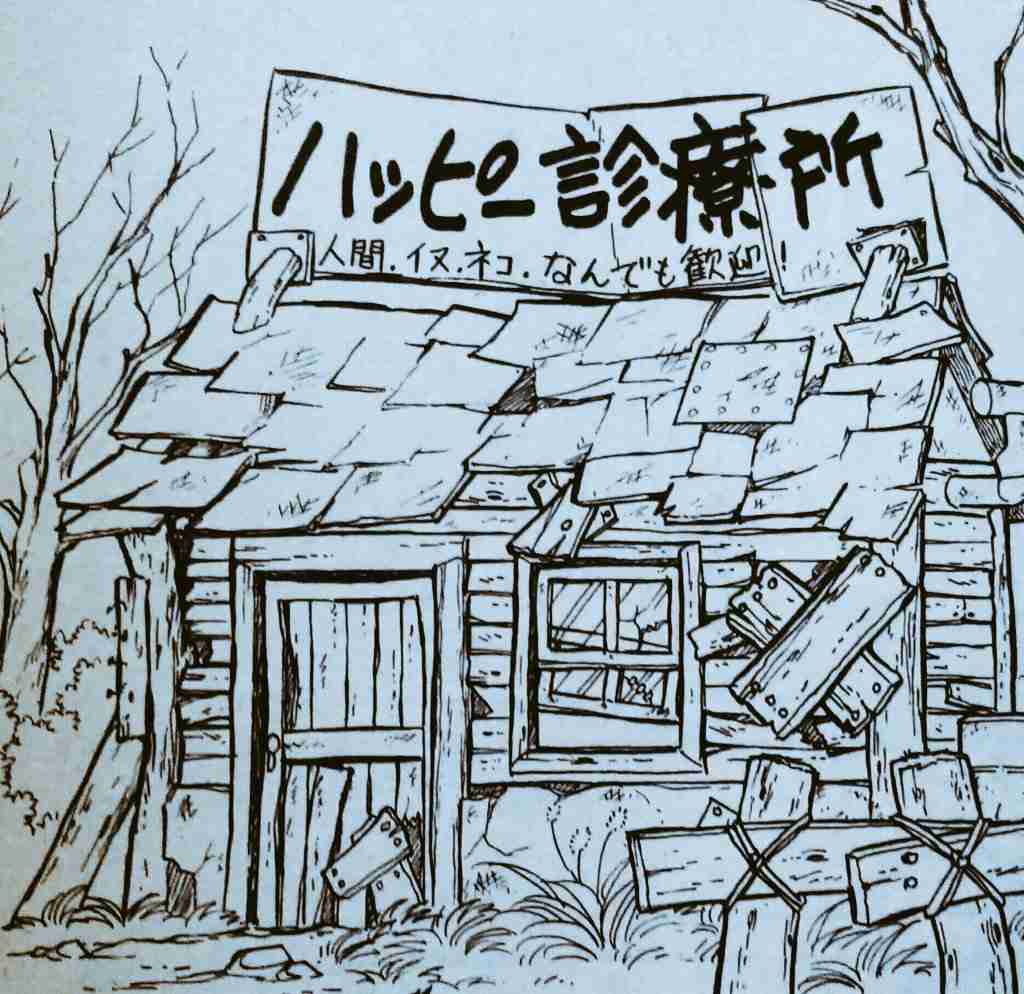 ハッピー診療所
人間.イヌ.ネコ.なんでも歓迎!